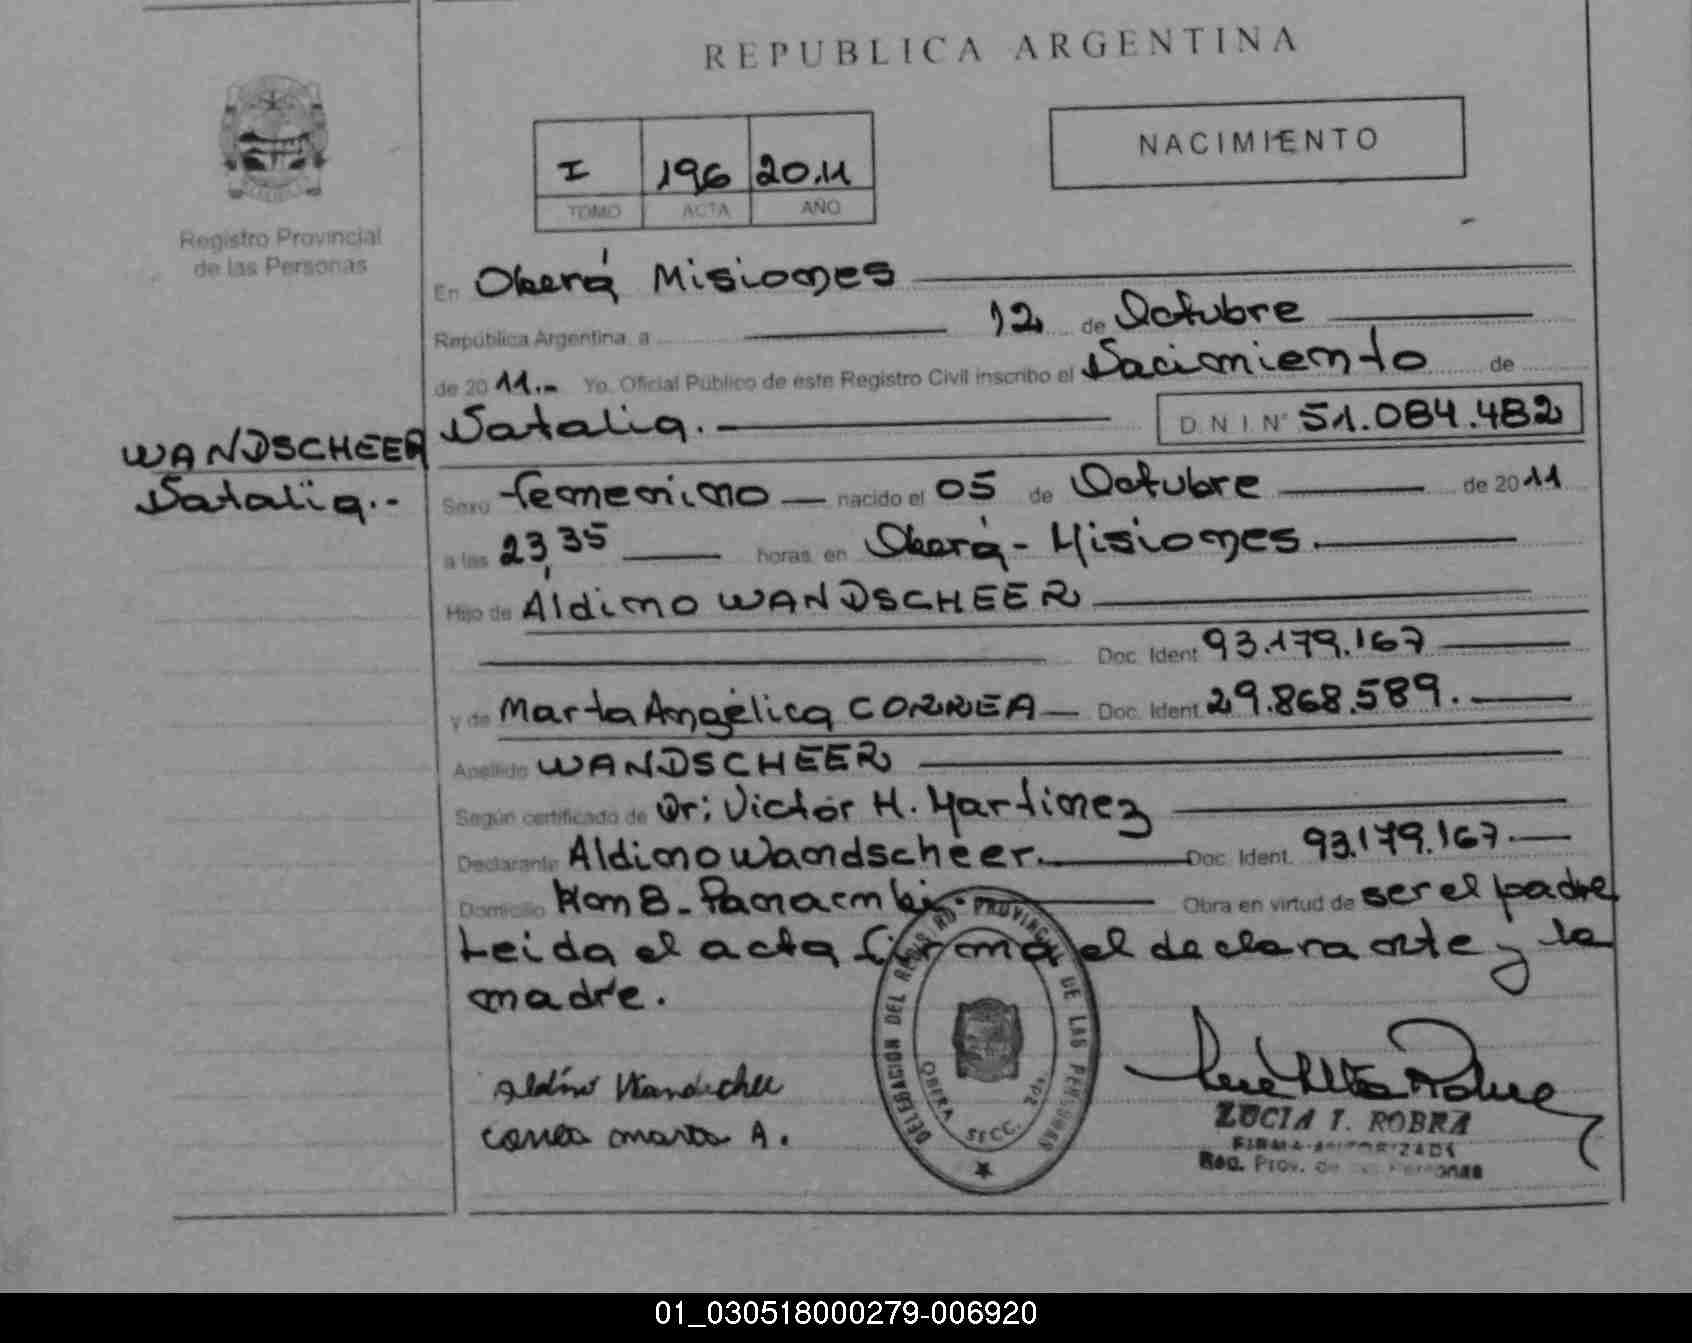 REPUBLICA ARGENTINA
NACIMIENTO
I 196 20.11
TOMO ACTA AÑO
Registro Provincial
de las Personas
En Oberá Misiones
República Argentina, a 12 de Octubre
de 20 11.- Yo, Oficial Público de este Registro Civil inscribo el Nacimiento de
Natalia. D.N.I. Nº 51.084.482
WANDSCHEER
Natalia.-
Sexo femenino nacido el 05 de Octubre de 20 11
a las 23,35 horas, en Oberá - Misiones.
Hijo de Aldino WANDSCHEER
Doc. Ident. 93.179.167
y de Marta Angélica CORREA Doc. Ident. 29.868.589.
Apellido WANDSCHEER
Según certificado de Dr: Victor H. Martinez
Declarante Aldino Wandscheer. Doc. Ident. 93.179.167.
Domicilio Km 8 - Panambi. Obra en virtud de ser el padre
Leida el acta firma el declarante y la
madre.
Aldino Wandscheer
Correa Marta A.
DELEGACION DEL REGISTRO PROVINCIAL DE LAS PERSONAS
OBERA SECC. 2da.
LUCIA T. ROBRA
FIRMA AUTORIZADA
Reg. Prov. de las Personas
01_030518000279-006920